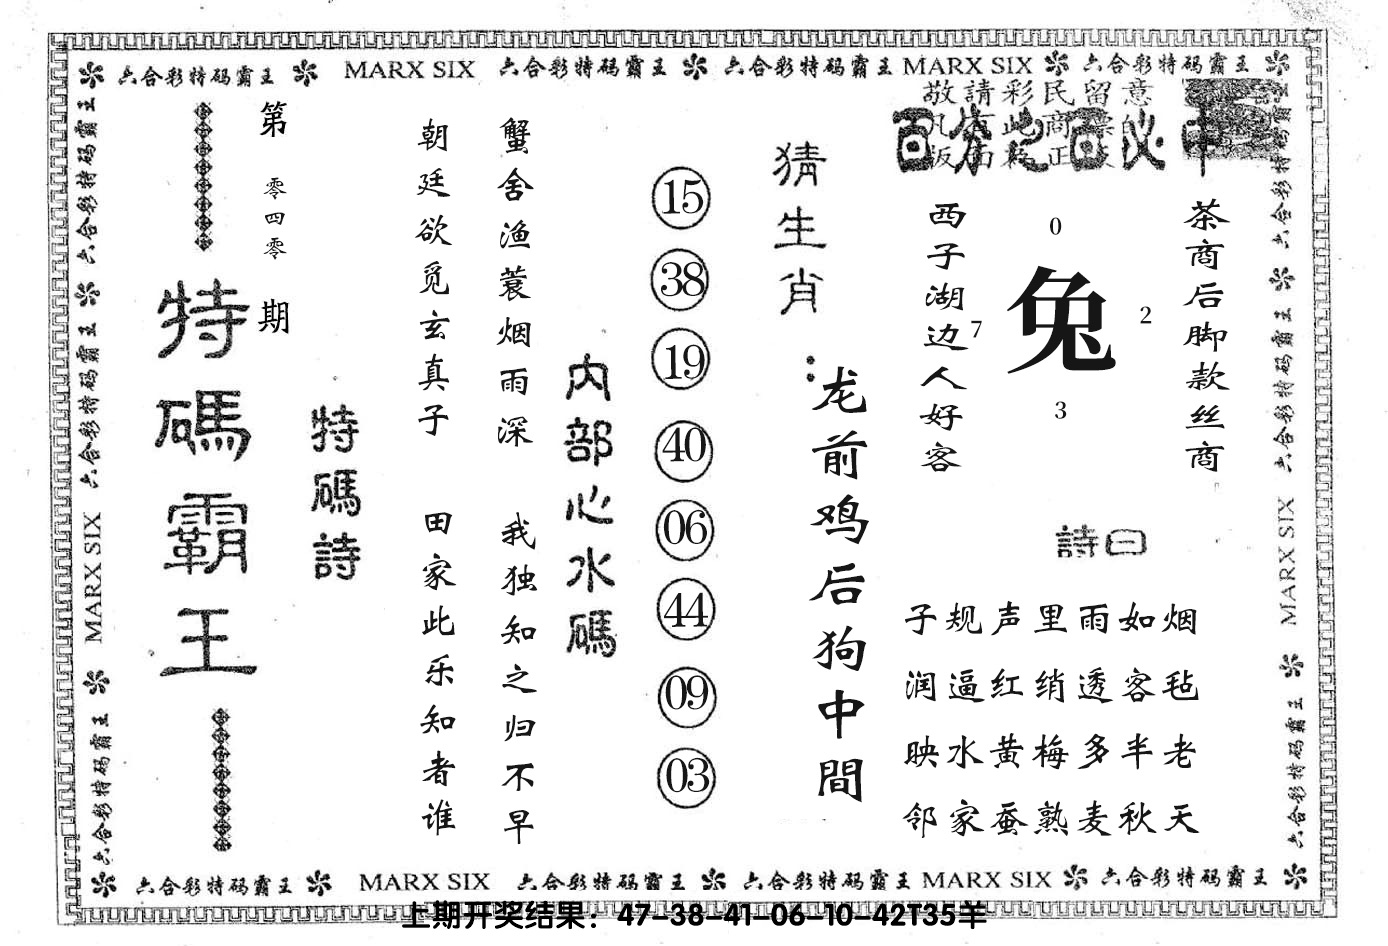 六合彩特码霸王 MARX SIX 六合彩特码霸王 六合彩特码霸王 MARX SIX 六合彩特码霸王
六合彩特码霸王
六合彩特码霸王
MARX SIX
六合彩特码霸王
第零四零期
特碼霸王
特碼詩
朝廷欲觅玄真子
蟹舍渔蓑烟雨深
田家此乐知者谁
我独知之归不早
内部心水碼
15
38
19
40
06
44
09
03
猜生肖：
龙前鸡后狗中間
敬請彩民留意
百分之百必中
西子湖边人好客
0
7
兔
2
3
茶商后脚款丝商
詩曰
子规声里雨如烟
润逼红绡透客毡
映水黄梅多半老
邻家蚕熟麦秋天
六合彩特码霸王
六合彩特码霸王
MARX SIX
六合彩特码霸王
六合彩特码霸王 MARX SIX 六合彩特码霸王 六合彩特码霸王 MARX SIX 六合彩特码霸王
上期开奖结果：47-38-41-06-10-42T35羊